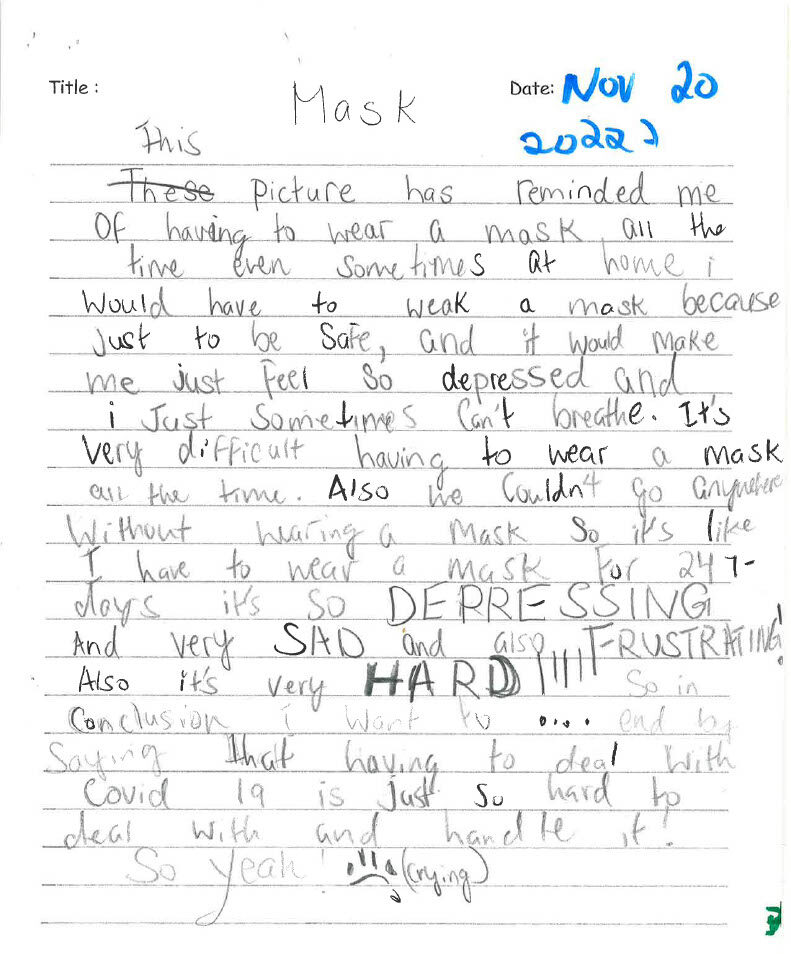 Title :
Mask
Date: Nov 20
2022
This
These picture has reminded me
Of having to wear a mask all the
time even sometimes at home i
Would have to weak a mask because
Just to be Safe, and it would make
me just Feel So depressed and
i Just Sometimes Can't breathe. It's
Very difficult having to wear a mask
all the time. Also we Couldn't go anywhere
Without wearing a Mask So it's like
I have to wear a mask For 24 7-
days it's so DEPRESSING
And very SAD and also FRUSTRATING!
Also it's very HARD!!!!! So in
Conclusion i want to .... end by
Saying that having to deal with
Covid 19 is just so hard to
deal with and handle it!
So yeah! (crying)